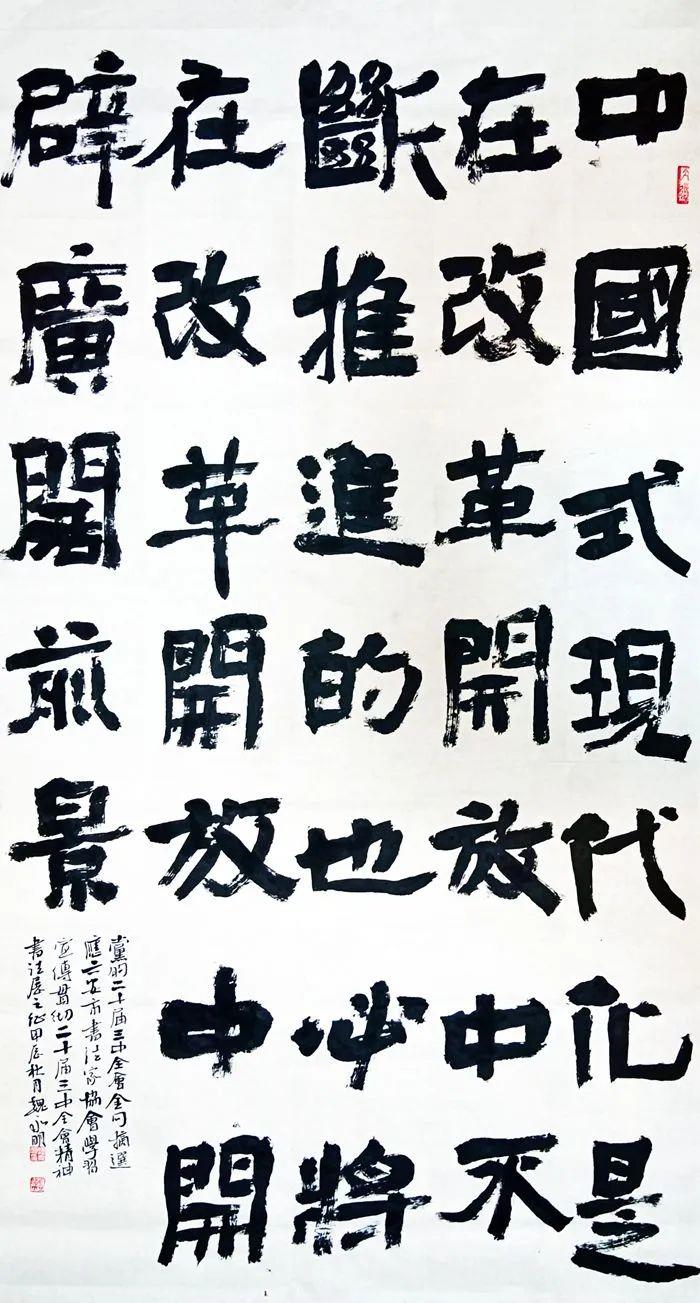 中國式現代化是
在改革開放中不
斷推進的也必將
在改革開放中開
辟廣闊前景
黨的二十届三中全會金句摘選
應六安市書法家協會學習
宣傳貫彻二十届三中全會精神
書法展之征甲辰秋月魏永明